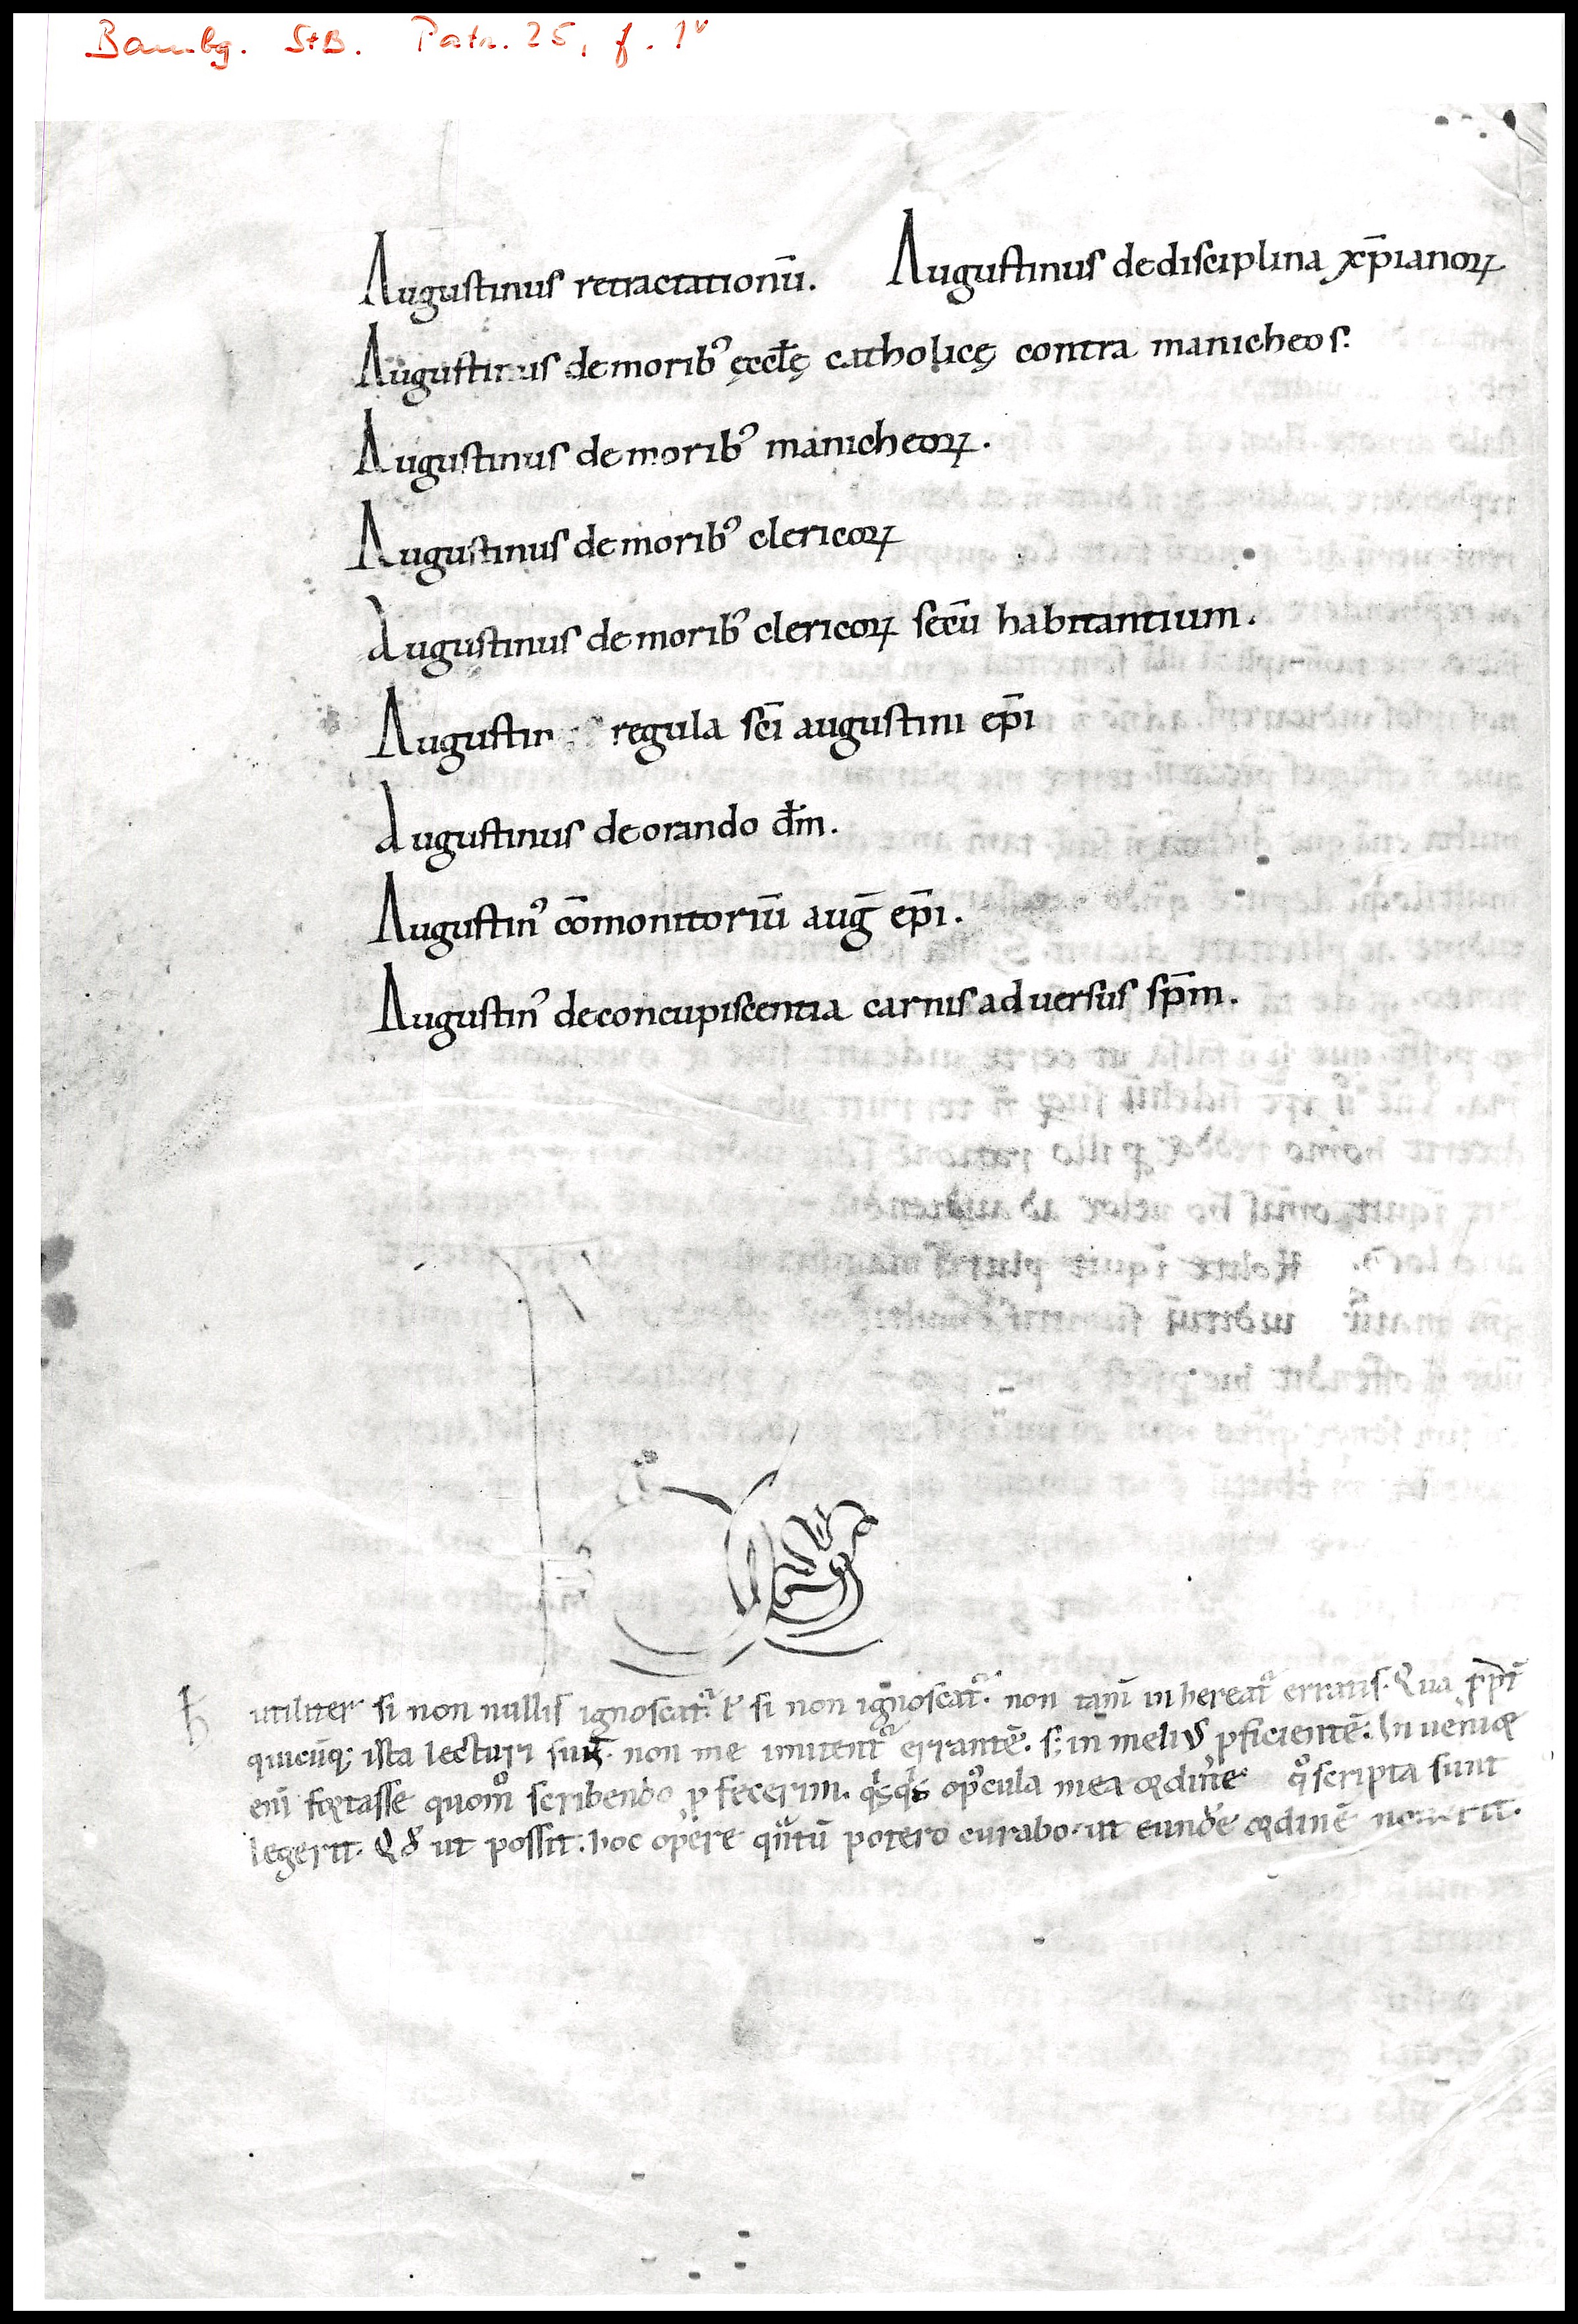 Bambg. StB. Patr. 25, f. 1v
Augustinus retractationū. Augustinus dedisciplina xp̄ianoꝝ
Augustinus demoribꝰ ęccłę catholicę contra manicheos.
Augustinus demoribꝰ manicheoꝝ.
Augustinus demoribꝰ clericoꝝ
Augustinus demoribꝰ clericoꝝ secū habitantium.
Augustin regula sc̄i augustini ep̄i
Augustinus deorando dm̄.
Augustinꝰ cōmonitoriū auḡ ep̄i.
Augustinꝰ deconcupiscentia carnis adversus sp̄m.
utiliter si non nullis ignoscat᷑. ł si non ignoscat᷑. non tam̄ inhereat᷑ erratis. Qua ꝓpt̄
quicūq; ista lecturi sun̄t. non me imitent᷑ errantē. s; in meliꝰ ꝓficientē. Inueniꝫ
eni᷒ fortasse quomͦ scribendo ꝓfecerim. qͥsqͥs opꝰcula mea ordine qͦ scripta sunt
legerit. Qđ ut possit. hoc opere quͣtū potero curabo. ut eunde ordinē nouerit.